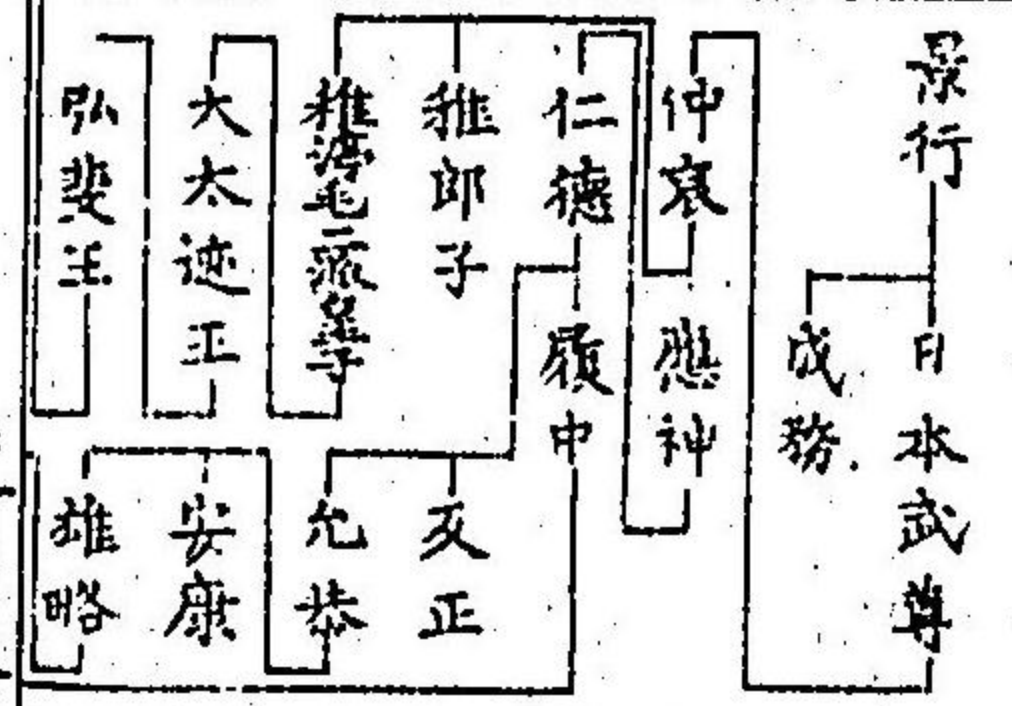 景行
日本武尊
成務
仲哀
應神
仁德
履中
稚郎子
反正
稚渟毛二派皇子
允恭
大太迹王
安康
弘斐王
雄略